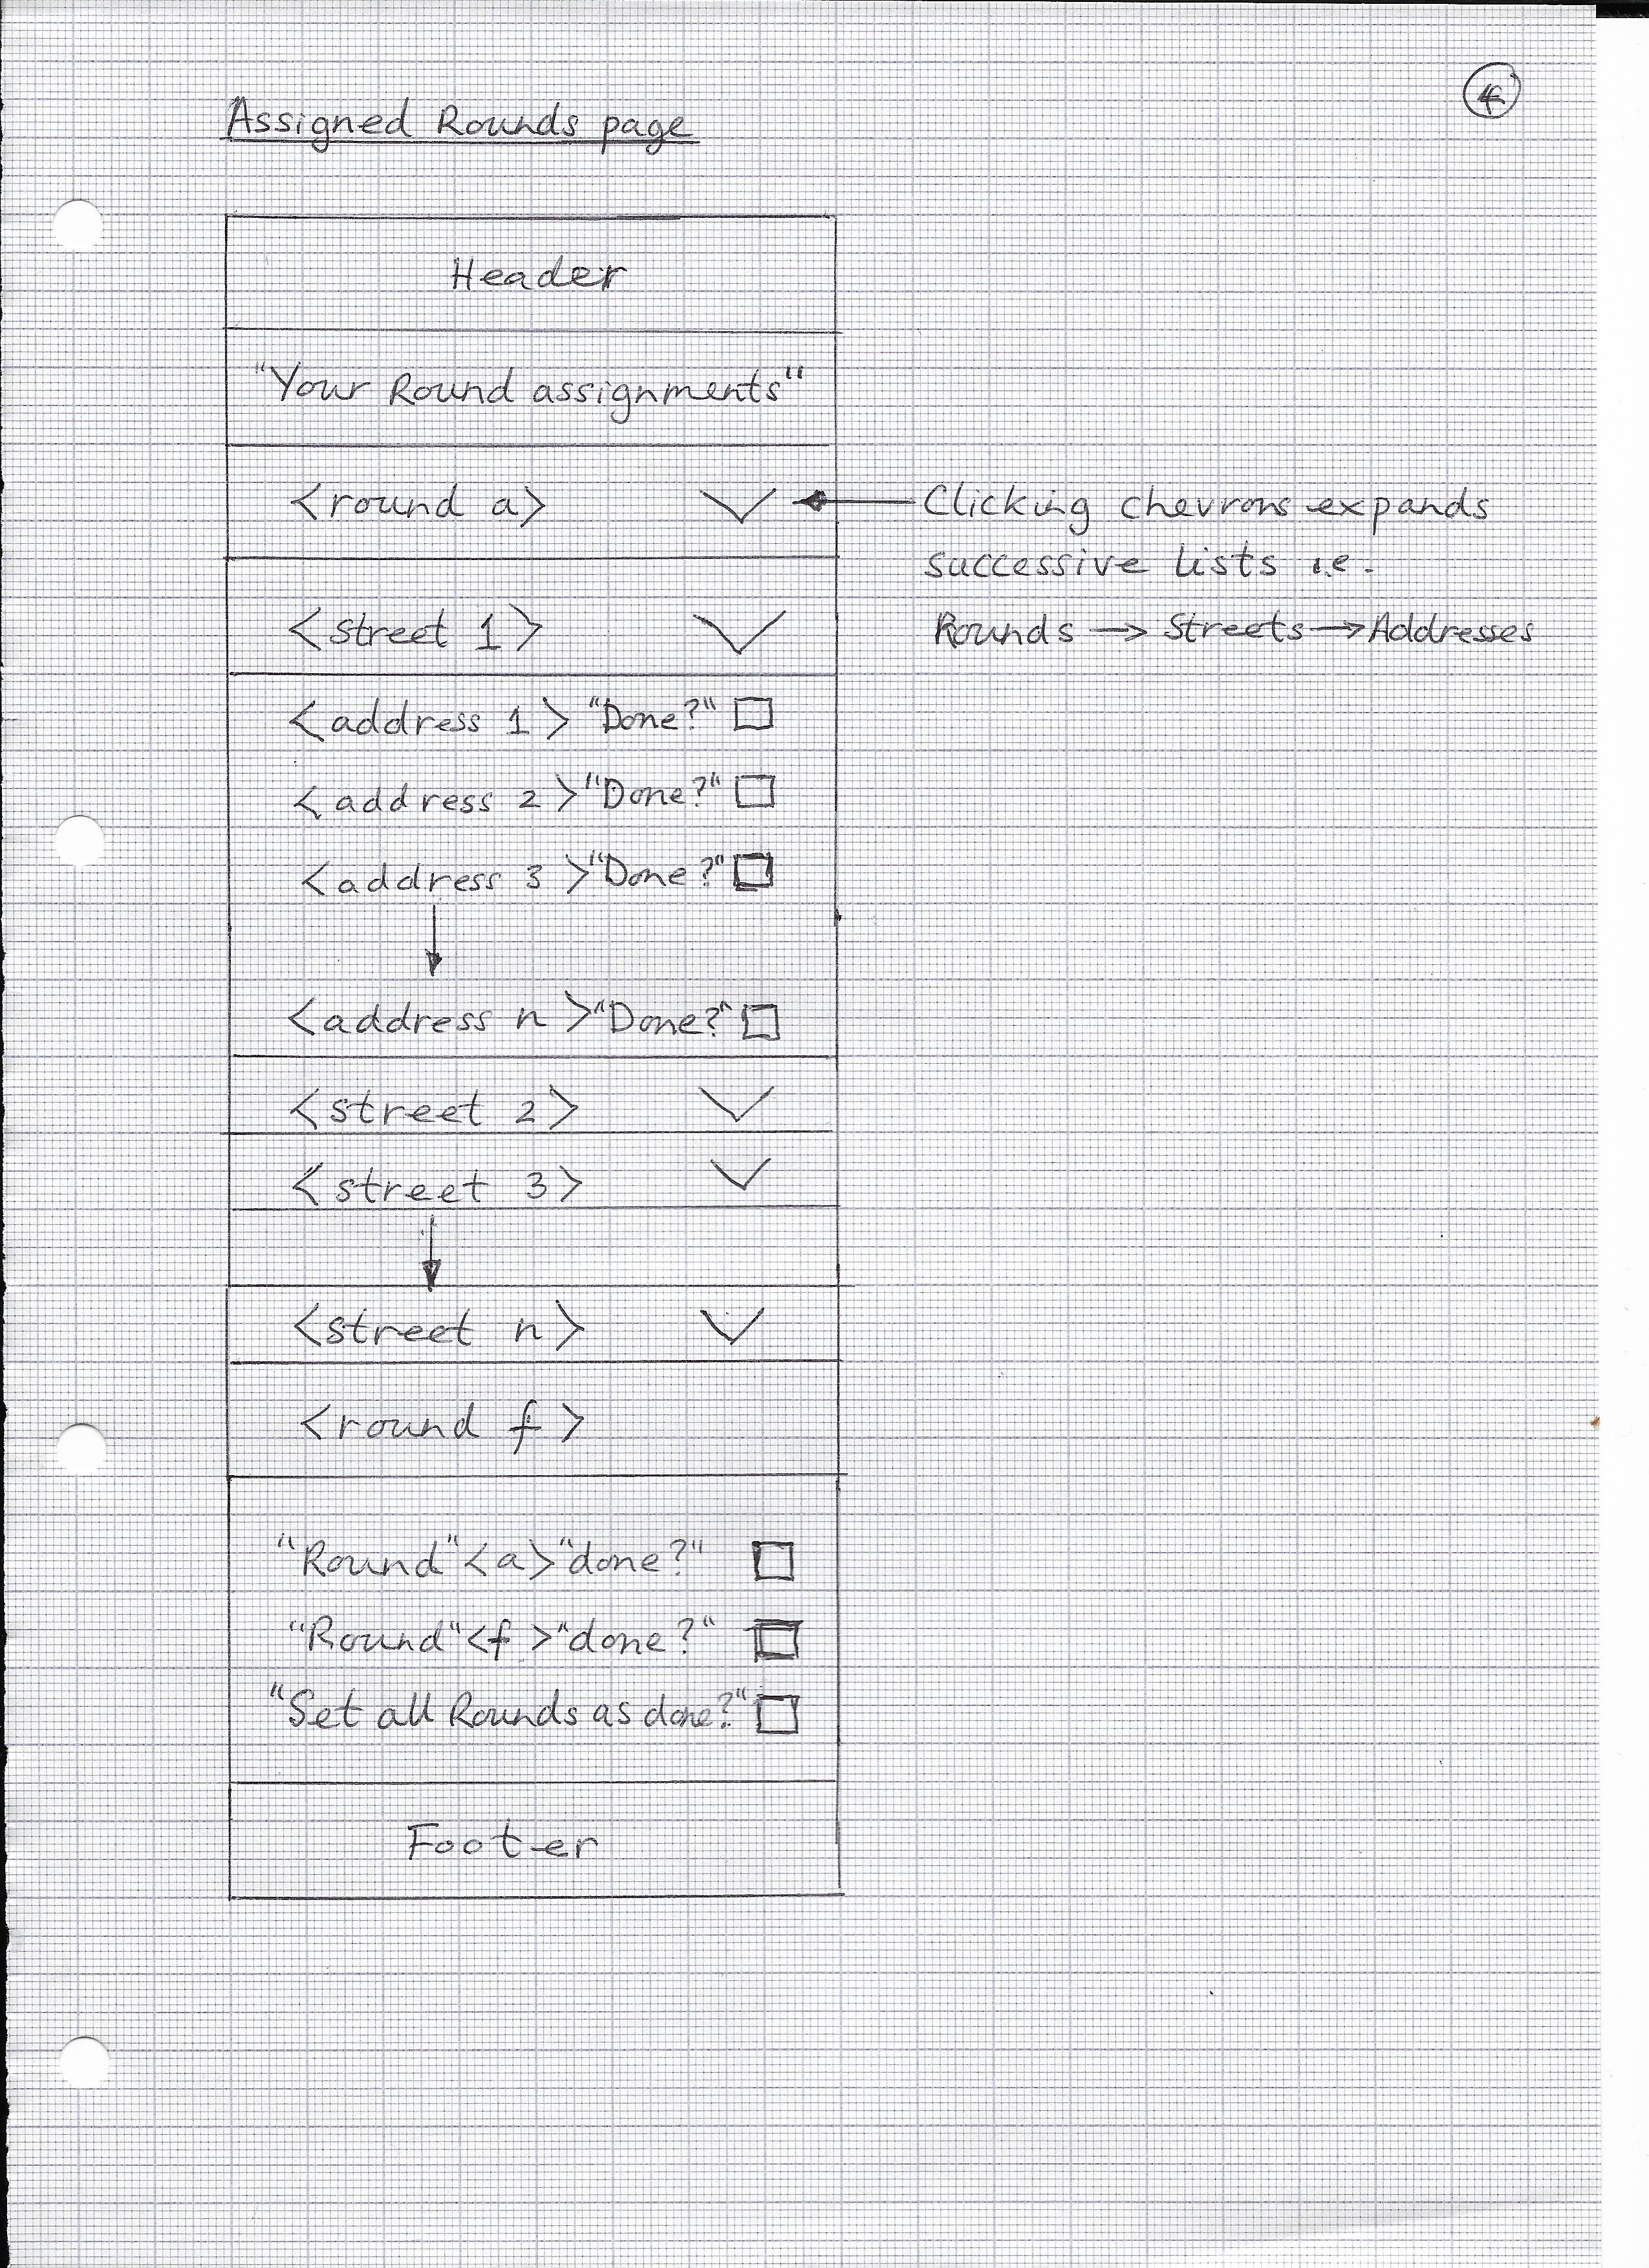 4
Assigned Rounds page
Header
"Your Round assignments"
<round a>
Clicking chevrons expands
successive lists i.e.
Rounds → Streets → Addresses
<street 1>
<address 1> "Done?"
<address 2> "Done?"
<address 3> "Done?"
<address n> "Done?"
<street 2>
<street 3>
<street n>
<round f>
"Round" <a> "done?"
"Round" <f> "done?"
"Set all Rounds as done?"
Footer